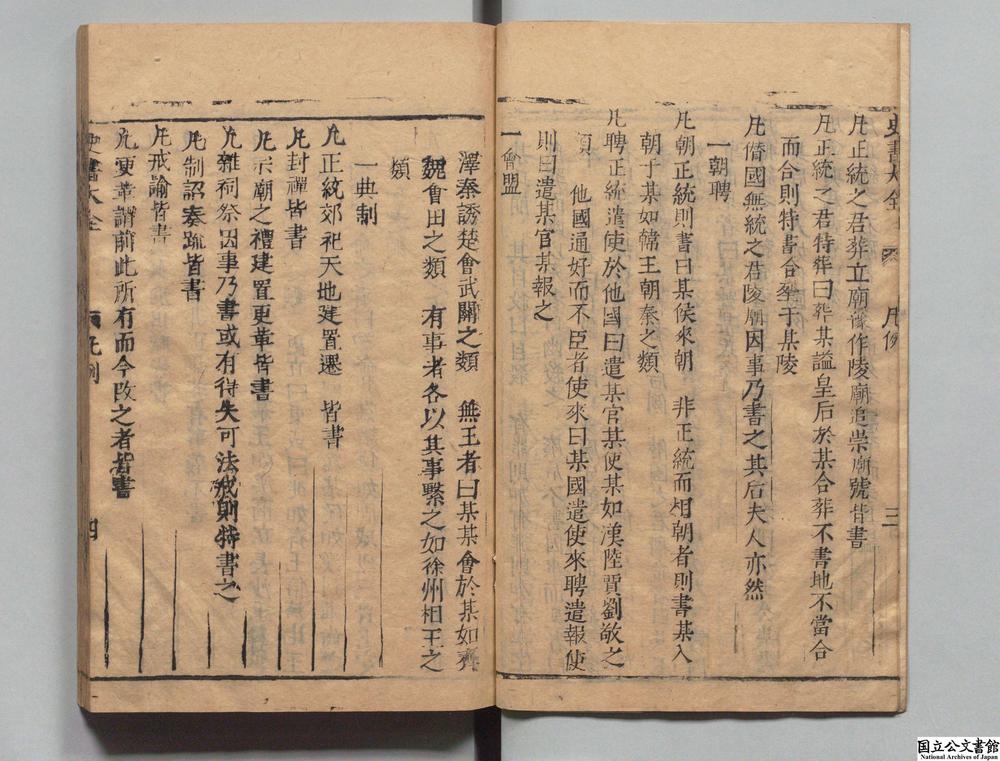 史書大全 凡例 三
凡正統之君葬立廟像作陵廟追崇廟號皆書
凡正統之君特葬曰葬某謚皇后於某合葬不書地不當合
而合則特書合葬于某陵
凡僭國無統之君陵廟因事乃書之其后夫人亦然
一朝聘
凡朝正統則書曰某侯來朝 非正統而相朝者則書某入
朝于某如韓王朝秦之類
凡聘正統遣使於他國曰遣某官某使某如漢陸賈劉敬之
類 他國通好而不臣者使來曰某國遣使來聘遣報使
則曰遣某官某報之
一會盟
澤秦誘楚會武關之類 無王者曰某某會於某如齊
魏會田之類 有事者各以其事繫之如徐州相王之
類
一典制
凡正統郊祀天地建置遷 皆書
凡封禪皆書
凡宗廟之禮建置更革皆書
凡雜祠祭因事乃書或有得失可法戒則特書之
凡制詔奏疏皆書
凡戒諭皆書
凡更革謂前此所有而今改之者皆書
史書大全 凡例 四
国立公文書館
National Archives of Japan